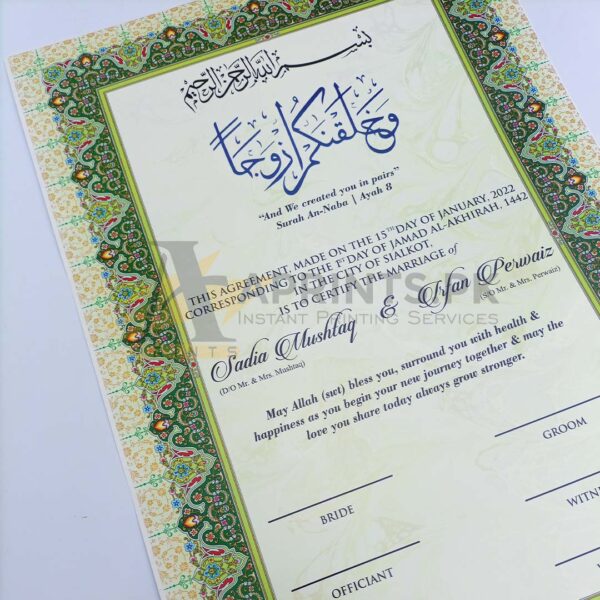 بسم الله الرحمن الرحيم
وخلقنكم أزوجا
“And We created you in pairs”
Surah An-Naba | Ayah 8
THIS AGREEMENT, MADE ON THE 15TH DAY OF JANUARY, 2022
CORRESPONDING TO THE 1ST DAY OF JAMAD AL-AKHIRAH, 1442
IN THE CITY OF SIALKOT,
IS TO CERTIFY THE MARRIAGE of
Sadia Mushtaq & Irfan Perwaiz
(D/O Mr. & Mrs. Mushtaq) (S/O Mr. & Mrs. Perwaiz)
APRINTS.PK
INSTANT PRINTING SERVICES
May Allah (swt) bless you, surround you with health &
happiness as you begin your new journey together & may the
love you share today always grow stronger.
BRIDE
GROOM
OFFICIANT